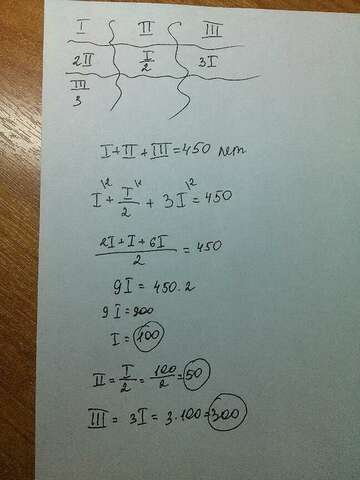 I II III
2II I/2 3I
III/3
I + II + III = 450 лет
I\2 + I/2\1 + 3I\2 = 450
2I + I + 6I / 2 = 450
9I = 450.2
9I = 900
I = 100
II = I/2 = 100/2 = 50
III = 3I = 3.100 = 300